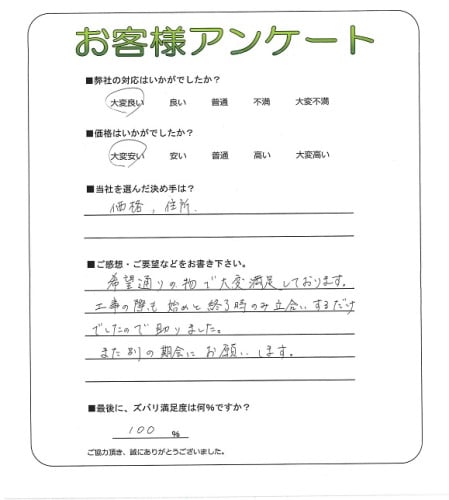 お客様アンケート
■弊社の対応はいかがでしたか?
大変良い 良い 普通 不満 大変不満
■価格はいかがでしたか?
大変安い 安い 普通 高い 大変高い
■当社を選んだ決め手は?
価格, 住所.
■ご感想・ご要望などをお書き下さい。
希望通りの物で大変満足しております。
工事の際も 始めと終了時のみ立合いするだけ
でしたので 助りました。
また別の期会に お願いします。
■最後に、ズバリ満足度は何%ですか?
100 %
ご協力頂き、誠にありがとうございました。